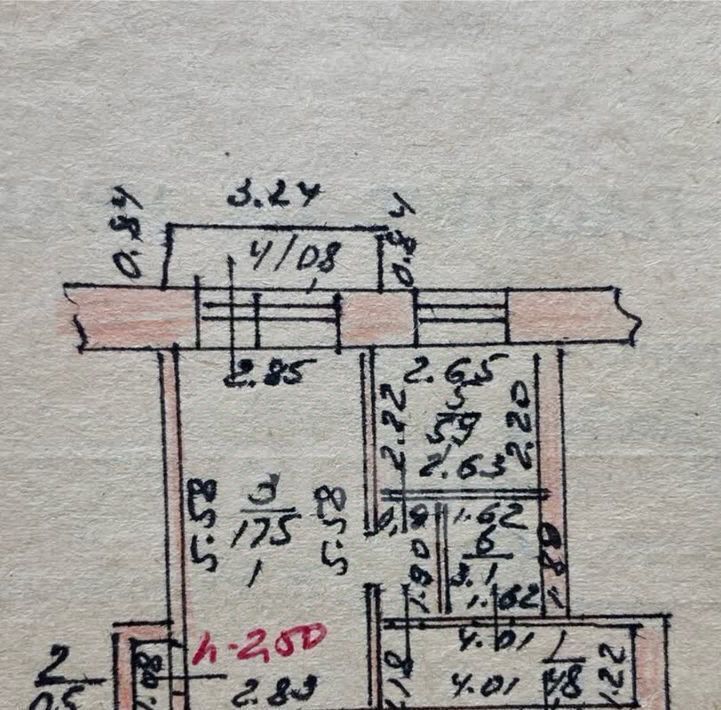 3.24
0.84
0.84
4/08
2.85
2.65
2.22
5
5.9
2.20
2.63
5.58
3
17.5
1
5.58
1.62
1.90
6
3.1
1.88
1.62
h-2,50
4.01
1
4.8
1.22
1.18
4.01
2
0.5
1.08
2.83